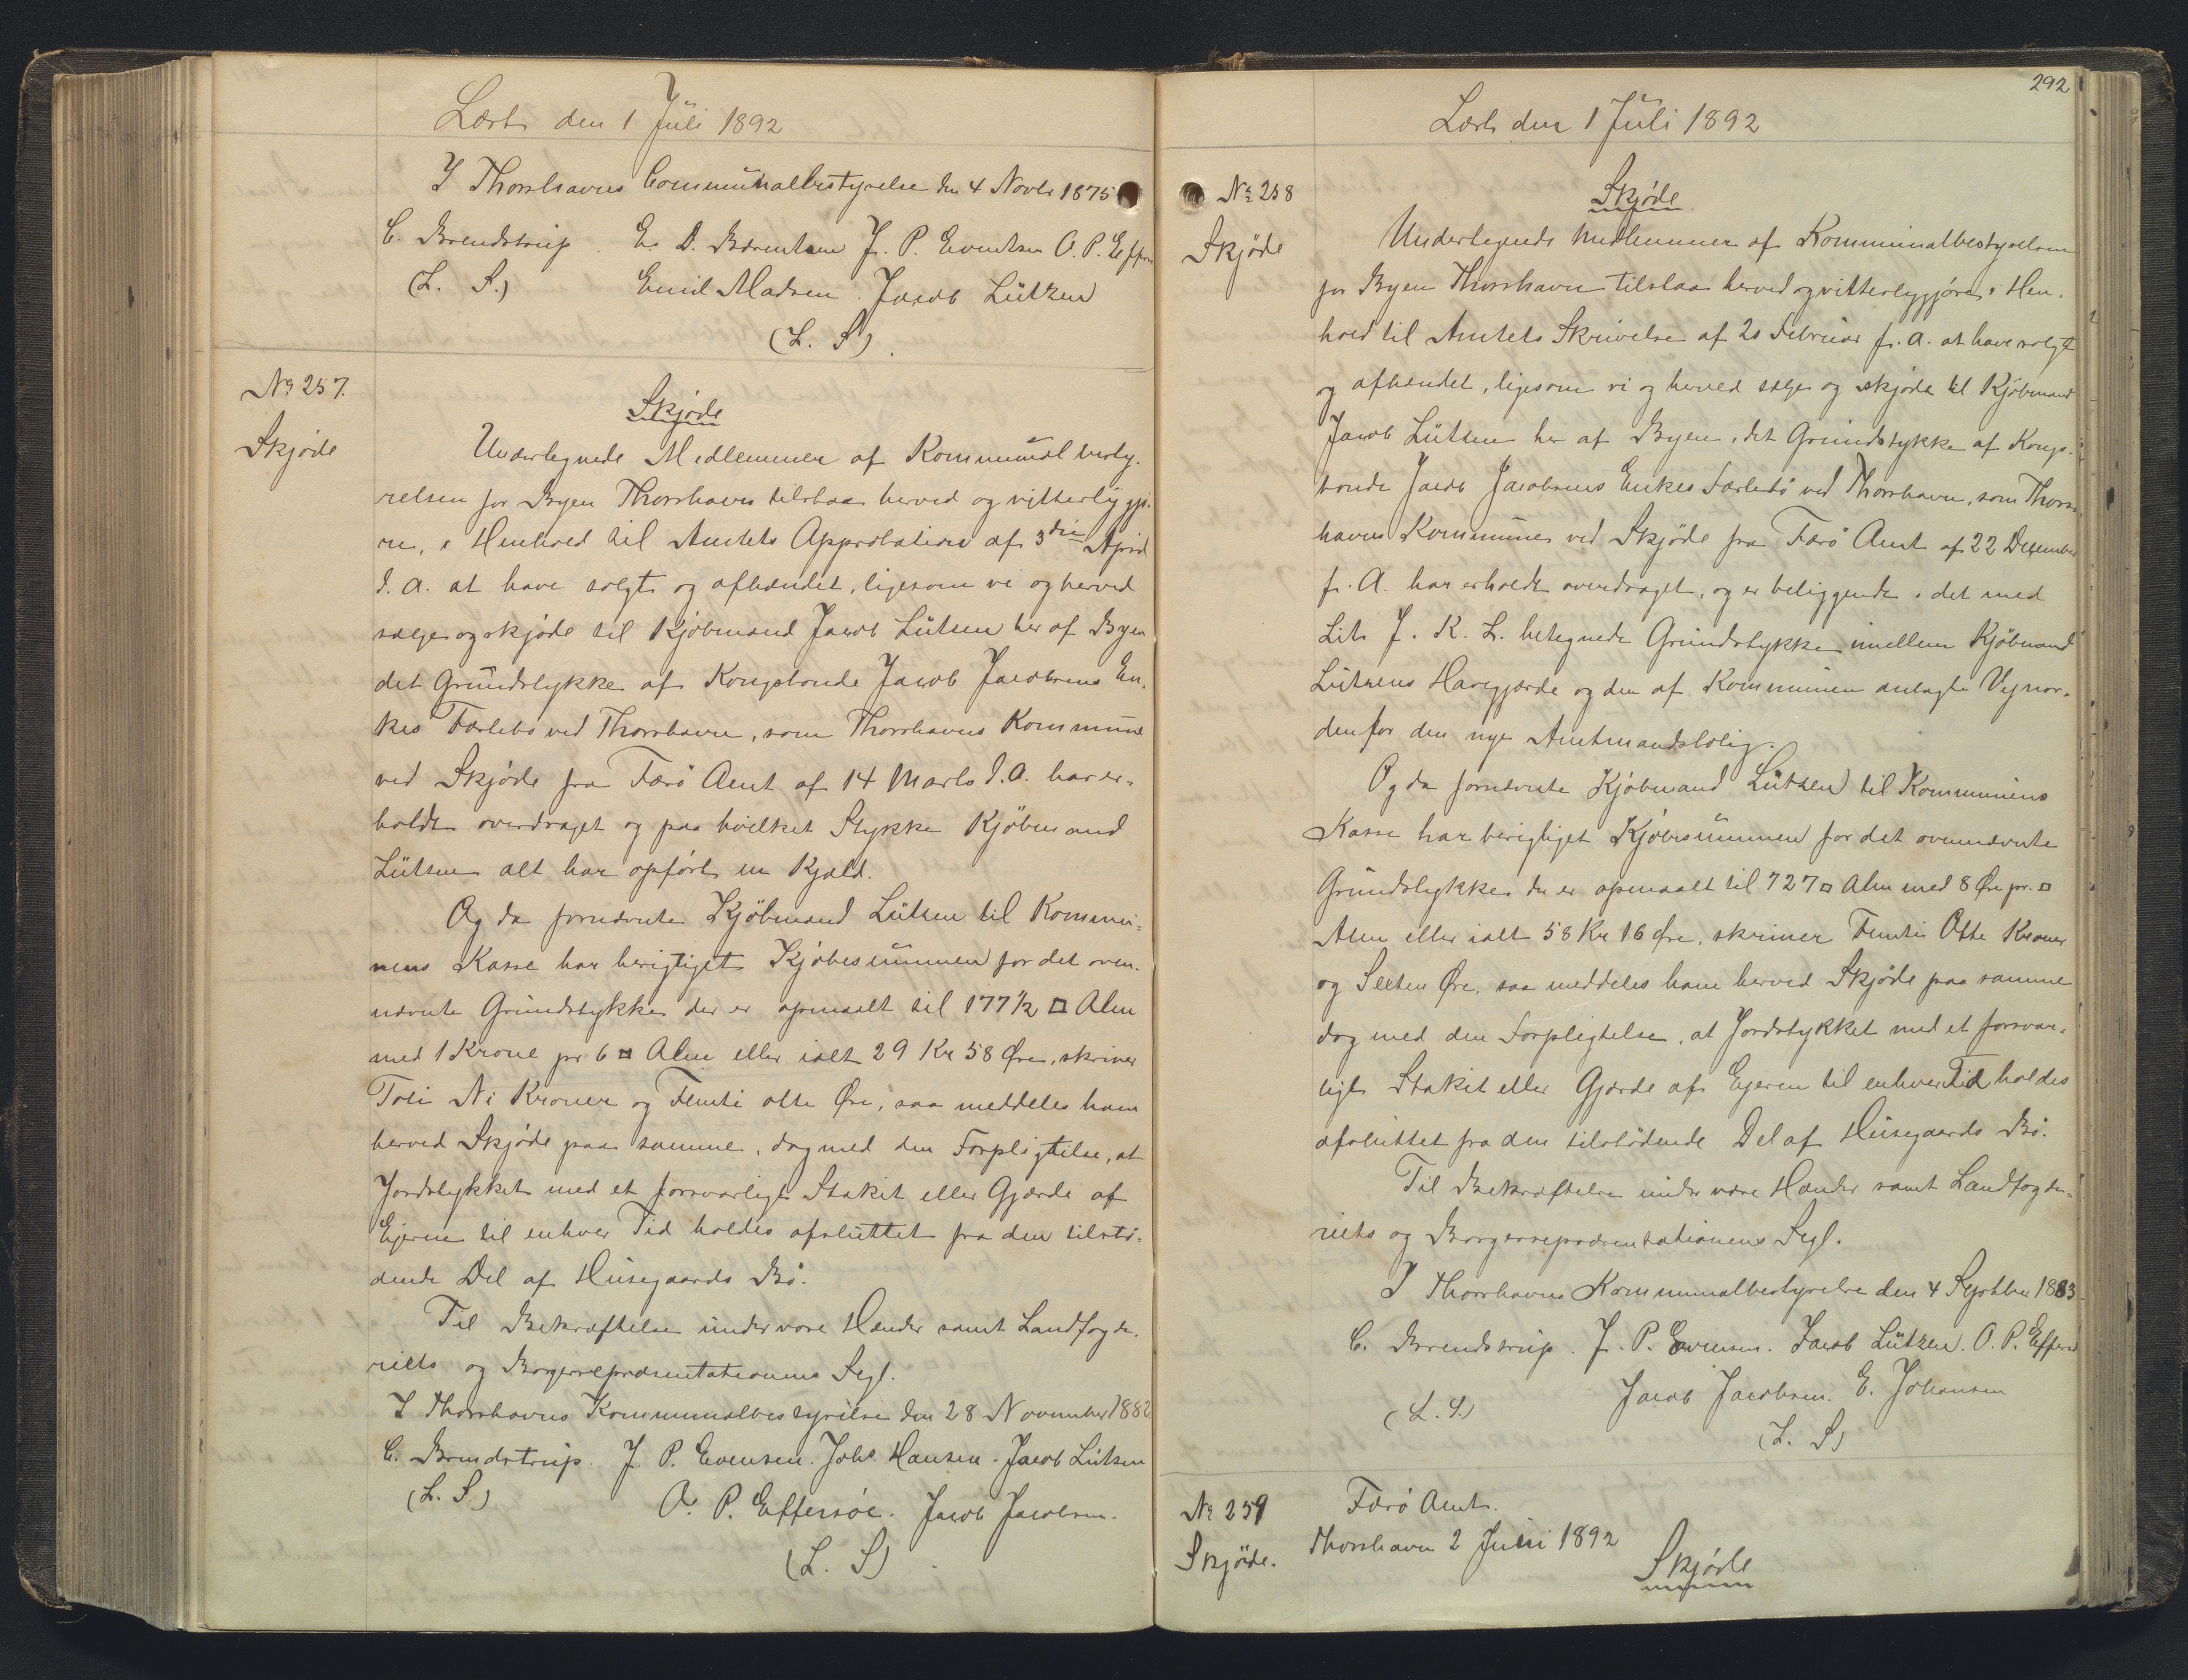 Læst den 1 Juli 1892
I Thorshavns Communalbestyrelse den 4 Novbr 1875
C. Brendstrup. E. D. Bærentsen J. P. Eventsen O. P. Effer
(L. S.) Emil Madsen. Jacob Lützen
(L. S).
No 257.
Skjøde
Skjøde
Undertegnede Medlemmer af Kommunalbesty-
relsen for Byen Thorshavn tilstaa herved og vitterliggjø-
re, i Henhold til Amtets Approbation af 3die April
d. A. at have solgt og afhændet, ligesom vi og herved
sælge og skjøde til Kjøbmand Jacob Lützen her af Byen
det Grundstykke af Kongsbonde Jacob Jacobsens En-
kes Fæstebø ved Thorshavn, som Thorshavns Kommune
ved Skjøde fra Færø Amt af 14 Marts d. A. har er-
holdt overdraget og paa hvilket Stykke Kjøbmand
Lützen alt har opført en Kjald.
Og da fornævnte Kjøbmand Lützen til Kommu-
nens Kasse har berigtiget Kjøbesummen for det oven-
nævnte Grundstykke der er opmaalt til 177 1/2 □ Alen
med 1 Krone pr 6 □ Alen eller ialt 29 Kr 58 Øre, skriver
Tyve Ni Kroner og Femti otte Øre, saa meddeles ham
herved Skjøde paa samme, dog med den Forpligtelse, at
Jordstykket med et forsvarligt Stakit eller Gjærde af
Ejeren til enhver Tid holdes afsluttet fra den tilstø-
dende Del af Husegaards Bø.
Til Bekræftelse under vore Hænder samt Landfogde-
riets og Borgerrepræsentationens Segl.
I Thorshavns Kommunalbestyrelse den 28 November 1882
C. Brendstrup. J. P. Evensen. Johs. Hansen. Jacob Lützen
(L. S.) O. P. Effersøe. Jacob Jacobsen.
(L. S).
292
Læst den 1 Juli 1892
No 258
Skjøde
Skjøde.
Undertegnede Medlemmer af Kommunalbestyrelsen
for Byen Thorshavn tilstaa herved og vitterliggjøre i Hen-
hold til Amtets Skrivelse af 20 Februar f. A. at have solgt
og afhændet, ligesom vi og herved sælge og skjøde til Kjøbmand
Jacob Lützen her af Byen, det Grundstykke af Kongs-
bonde Jacob Jacobsens Enkes Fæstebø ved Thorshavn, som Thors-
havns Kommune ved Skjøde fra Færø Amt af 22 December
f. A. har erholdt overdraget, og er beliggende i det med
Lit. J. K. L. betegnede Grundstykke imellem Kjøbmand
Lützens Havegjærde og den af Kommunen anlagte Vej nor-
denfor den nye Amtmandsbolig.
Og da fornævnte Kjøbmand Lützen til Kommunens
Kasse har berigtiget Kjøbesummen for det ovennævnte
Grundstykke der er opmaalt til 727 □ Alen med 8 Øre pr. □
Alen eller ialt 58 Kr 16 Øre, skriver Femti Otte Kroner
og Sexten Øre, saa meddeles ham herved Skjøde paa samme
dog med den Forpligtelse, at Jordstykket med et forsvar-
ligt Stakit eller Gjærde af Ejeren til enhver Tid holdes
afsluttet fra den tilstødende Del af Husegaards Bø.
Til Bekræftelse under vore Hænder samt Landfogde-
riets og Borgerrepræsentationens Segl.
I Thorshavns Kommunalbestyrelse den 4 Septbr 1883
C. Brendstrup. J. P. Evensen. Jacob Lützen. O. P. Effersø
Jacob Jacobsen. E. Johansen
(L. S.)
(L. S)
No 259
Skjøde.
Færø Amt.
Thorshavn 2 Juni 1892
Skjøde